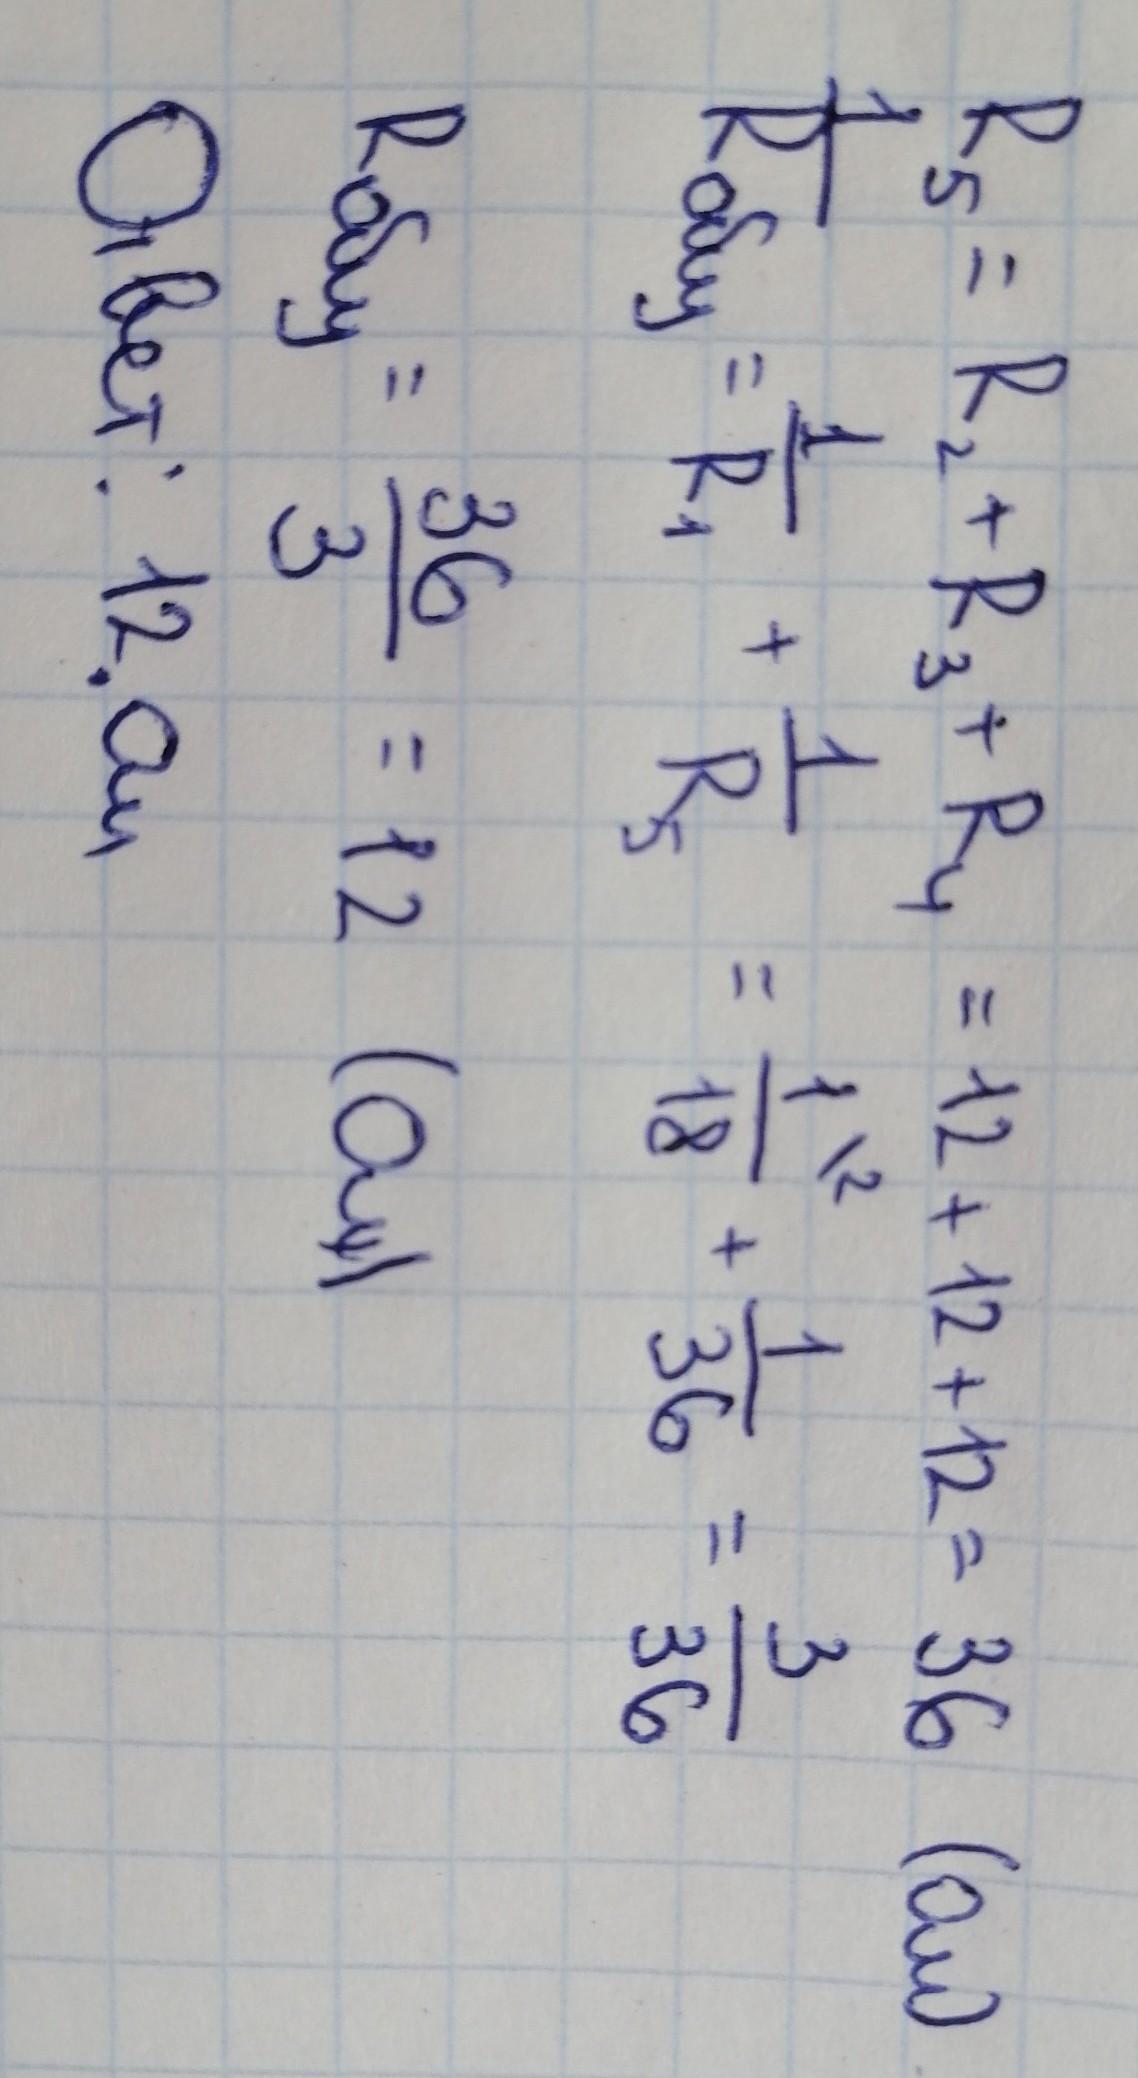 R₅ = R₂ + R₃ + R₄ = 12 + 12 + 12 = 36 (Ом)
1/Rобщ = 1/R₁ + 1/R₅ = 1\2/18 + 1/36 = 3/36
Rобщ = 36/3 = 12 (Ом)
Ответ: 12. Ом